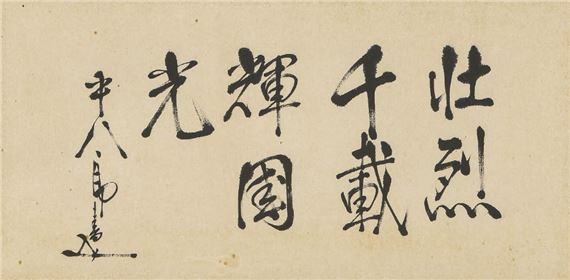 壯烈
千載
輝國
光
平八郎書